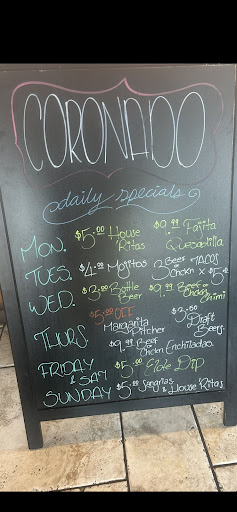 CORONADO
daily specials
MON. $5.00 House Ritas $9.99 Fajita Quesadilla
TUES. $4.00 Mojitos 3 Beef or Chicken TACOS x $5.
WED. $3.00 Bottle Beer $9.99 Beef or Chicken Chimi
THURS $5.00 OFF Margarita Pitcher $3.50 Draft Beers
$9.99 Beef Chicken Enchiladas
FRIDAY & SAT $5.00 Elote Dip
SUNDAY $5.00 Sangrias & House Ritas